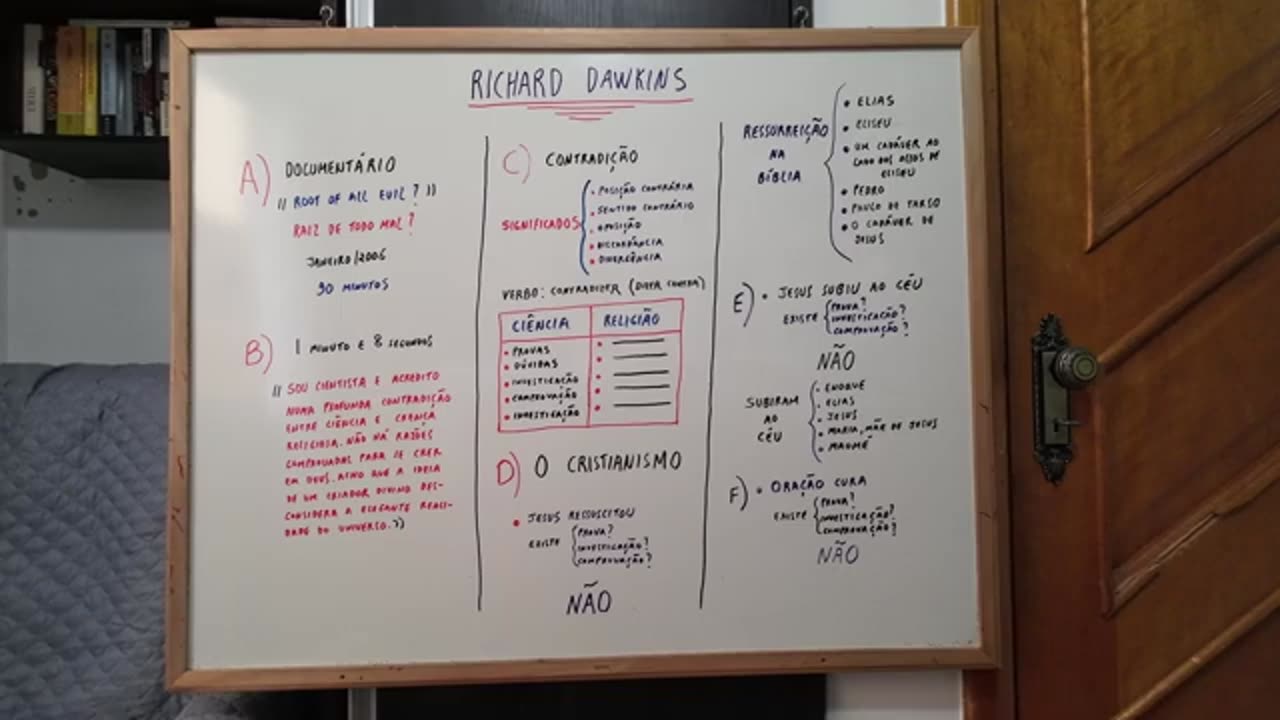 RICHARD DAWKINS
A) DOCUMENTÁRIO
"ROOT OF ALL EVIL?"
RAIZ DE TODO MAL?
JANEIRO/2006
90 MINUTOS
B) 1 MINUTO E 8 SEGUNDOS
"SOU CIENTISTA E ACREDITO
NUMA PROFUNDA CONTRADIÇÃO
ENTRE CIÊNCIA E CRENÇA
RELIGIOSA. NÃO HÁ RAZÕES
COMPROVADAS PARA SE CRER
EM DEUS. ACHO QUE A IDEIA
DE UM CRIADOR DIVINO DES-
CONSIDERA A ELEGANTE REALI-
DADE DO UNIVERSO."
C) CONTRADIÇÃO
SIGNIFICADOS
• POSIÇÃO CONTRÁRIA
• SENTIDO CONTRÁRIO
• OPOSIÇÃO
• DISCORDÂNCIA
• DIVERGÊNCIA
VERBO: CONTRADIZER (DIZER CONTRA)
CIÊNCIA RELIGIÃO
• PROVAS
• DÚVIDAS
• INVESTIGAÇÃO
• COMPROVAÇÃO
• INVESTIGAÇÃO
D) O CRISTIANISMO
• JESUS RESSUSCITOU
EXISTE
PROVA?
INVESTIGAÇÃO?
COMPROVAÇÃO?
NÃO
RESSURREIÇÃO
NA
BÍBLIA
• ELIAS
• ELISEU
• UM CADÁVER AO
LADO DOS OSSOS DE
ELISEU
• PEDRO
• PAULO DE TARSO
• O CADÁVER DE
JESUS
E) • JESUS SUBIU AO CÉU
EXISTE
PROVA?
INVESTIGAÇÃO?
COMPROVAÇÃO?
NÃO
SUBIRAM
AO
CÉU
• ENOQUE
• ELIAS
• JESUS
• MARIA, MÃE DE JESUS
• MAOMÉ
F) • ORAÇÃO CURA
EXISTE
PROVA?
INVESTIGAÇÃO?
COMPROVAÇÃO?
NÃO